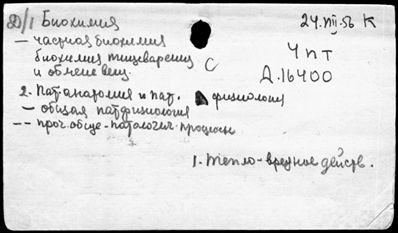 D/1 Биохимия
24.VIII.56 К
— частная биохимия
биохимия пищеварения
и обмена вещ.
С
4 пт
Д.16400
2. Пат. анатомия и пат. физиология
— общая патфизиология
-- проч. обще-патологич. процессы
1. тепло-вредное действ.